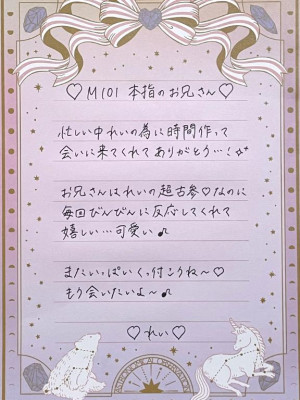 ♡M101 本指のお兄さん♡
忙しい中れいの為に時間作って
会いに来てくれてありがとう…!☆彡
お兄さんはれいの超古参♡なのに
毎回びんびんに反応してくれて
嬉しい…可愛い♪
またいっぱいくっ付こうね〜♡
もう会いたいよ〜♪
♡れい♡